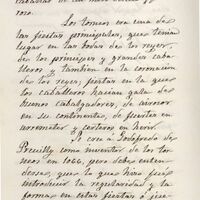 Los torneos era una de
las fiestas principales, que tenian
lugar en las bodas de los reyes,
de los principes y grandes caba-
lleros y tambien en la coronacion
de los reyes, fiestas en la que
los caballeros hacian gala de
buenos cabalgadores, de airosos
en su continente, de fuertes en
arremeter y certeros en herir.
Se cree á Godofredo de
Preuilly como inventor de los tor-
neos en 1066, pero debe enten-
derse, que lo que hizo fue
introducir la regularidad y la
forma en estas fiestas ó jue-